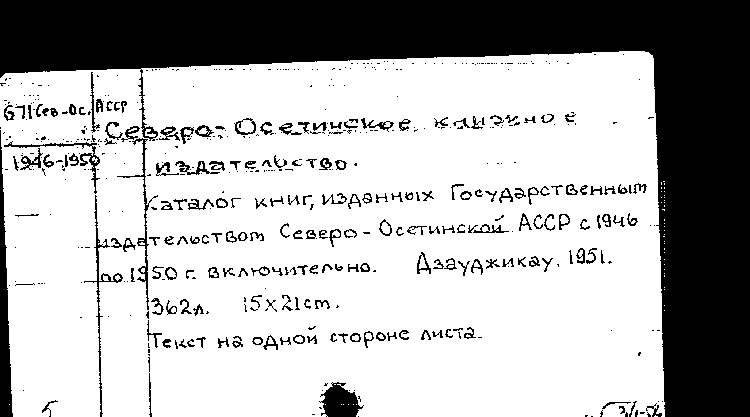 671 Сев-Ос. АССР
Северо-Осетинское книжное
1946-1950 издательство.
Каталог книг, изданных Государственным
издательством Северо-Осетинской АССР с 1946
по 1950 г. включительно. Дзауджикау, 1951.
362л. 15x21cm.
Текст на одной стороне листа.
5